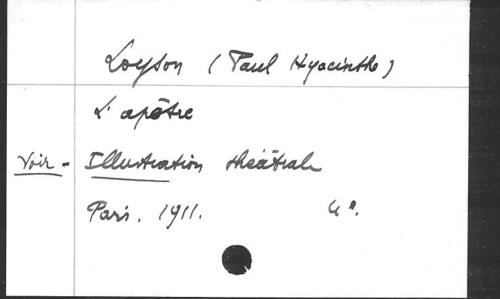 Loyson (Paul Hyacinthe)
L'apôtre
Voir - Illustration théâtrale
Paris. 1911. 4°.